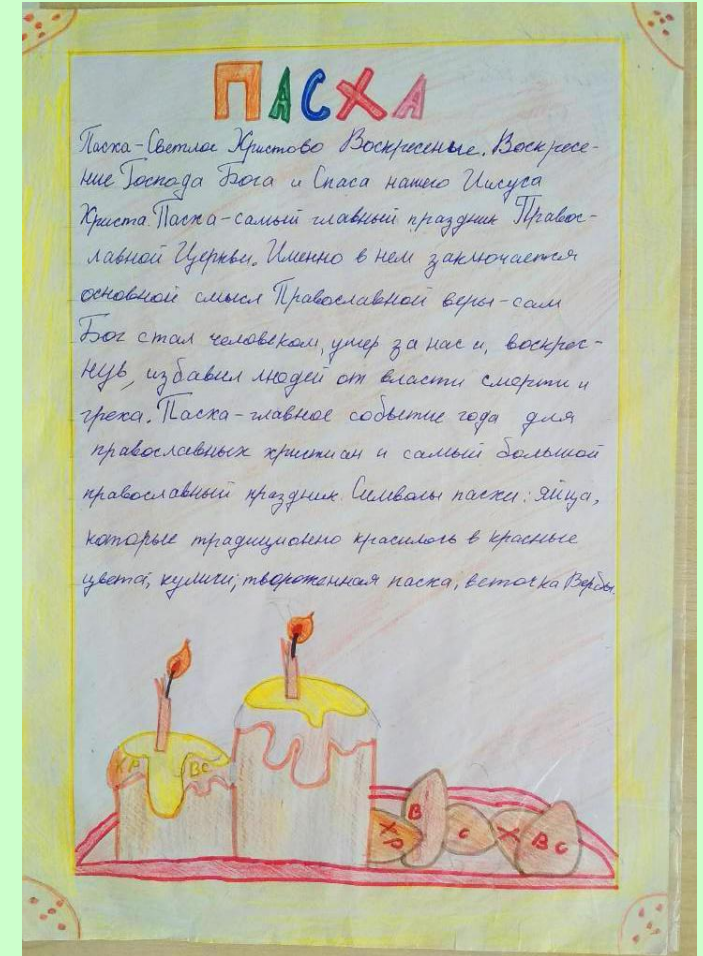 ПАСХА
Пасха-Светлое Христово Воскресенье. Воскресе-
ние Господа Бога и Спаса нашего Иисуса
Христа. Пасха-самый главный праздник Правос-
лавной Церкви. Именно в нем заключается
основной смысл Православной веры-сам
Бог стал человеком, умер за нас и, воскрес-
нув, избавил людей от власти смерти и
греха. Пасха-главное событие года для
православных христиан и самый большой
православный праздник. Символы пасхи: яйца,
которые традиционно красились в красные
цвета, куличи, твороженная пасха, веточка Вербы.
ХР ВС
ХР В С Х ВС